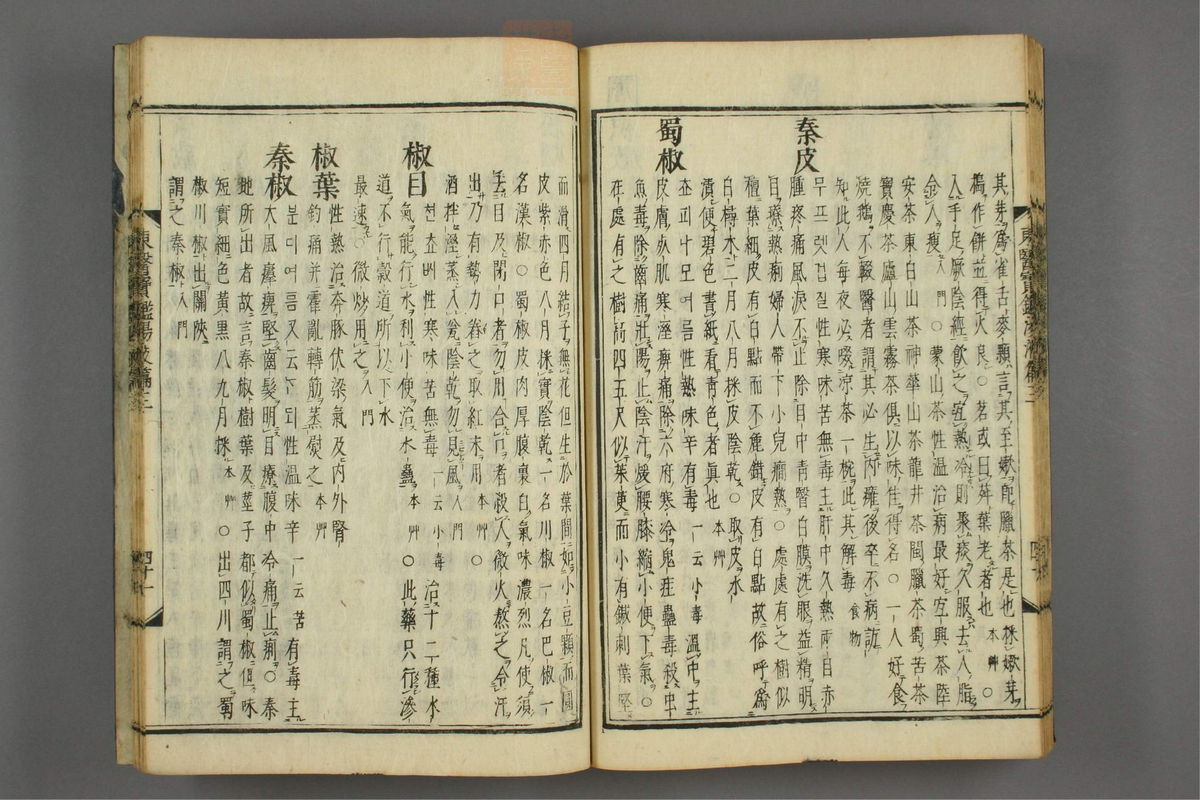 其芽爲雀舌麥顆言其至嫩即臘茶是也採嫩芽
搗作餠並得火良○茗或曰荈葉老者也本艸○
入手足厥陰經飮之宜熱冷則聚痰久服去人脂
令人瘦入門○蒙山茶性溫治病最好宜興茶陸
安茶東白山茶神華山茶龍井茶閩臘茶蜀苦茶
寶慶茶廬山雲霧茶俱以味佳得名○一人好食
燒鵝不輟醫者謂其必生內癰後卒不病訪
知此人每夜必啜凉茶一椀此其解毒食物
秦皮 무프렛겁질性寒味苦無毒主肝中久熱兩目赤
腫疼痛風淚不止除目中靑瞖白膜洗眼益精明
目療熱痢婦人帶下小兒癎熱○處處有之樹似
檀葉細皮有白點而不麁錯皮有白點故俗呼爲
白樳木二月八月採皮陰乾○取皮水
漬便碧色書紙看靑色者眞也本艸
蜀椒
죠피나모여름性熱味辛有毒一云小毒溫中主
皮膚死肌寒溼痺痛除六府寒冷鬼疰蠱毒殺虫
魚毒除齒痛壯陽止陰汗煖腰膝縮小便下氣○
在處有之樹高四五尺似茱萸而小有鍼刺葉堅
東醫寶鑑湯液篇卷三
四十
而滑四月結子無花但生於葉間如小豆顆而圓
皮紫赤色八月採實陰乾一名川椒一名巴椒一
名漢椒○蜀椒皮肉厚腹裏白氣味濃烈凡使須
去目及閉口者勿用合口者殺人微火熬之令汗
出乃有勢力舂之取紅末用本艸○
酒拌溼蒸入瓷陰乾勿見風入門
椒目 性寒味苦無毒一云小毒治十二種水
氣能行水利小便治水蠱本艸○此藥只行滲
道不行穀道所以下水
最速○微炒用之入門
椒葉 性熱治奔豚伏梁氣及內外腎
釣痛幷霍亂轉筋蒸熨之本艸
秦椒 분디여름又云性溫味辛一云苦有毒主
大風癢痺堅齒髮明目療腹中冷痛止痢○秦
地所出者故言秦椒樹葉及莖子都似蜀椒但味
短實細色黃黑八九月採本艸○出四川謂之蜀
椒川椒出關陝
謂之秦椒入門
東醫寶鑑湯液篇卷三
四十一